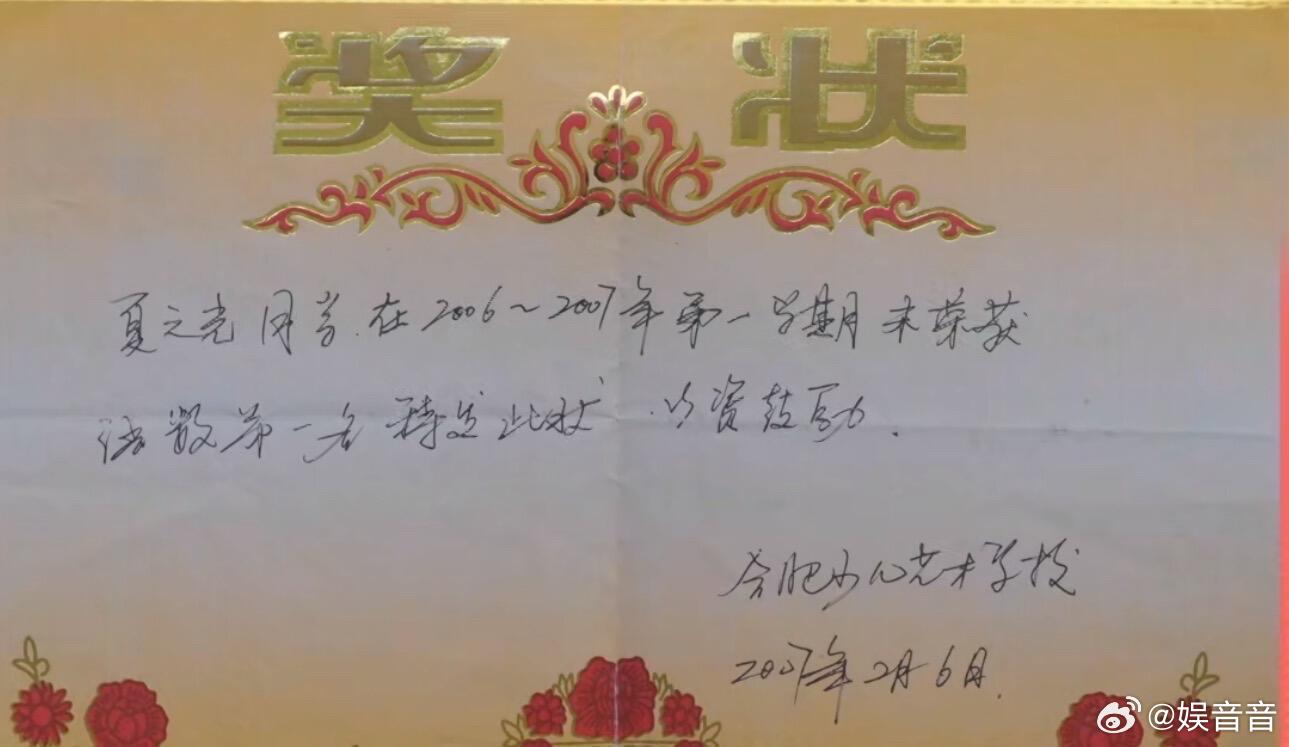 奖状
夏之光同学.在2006～2007年第一学期末荣获
语数第一名 特发此状.以资鼓励.
合肥少儿艺术学校
2007年2月6日.
@娱音音